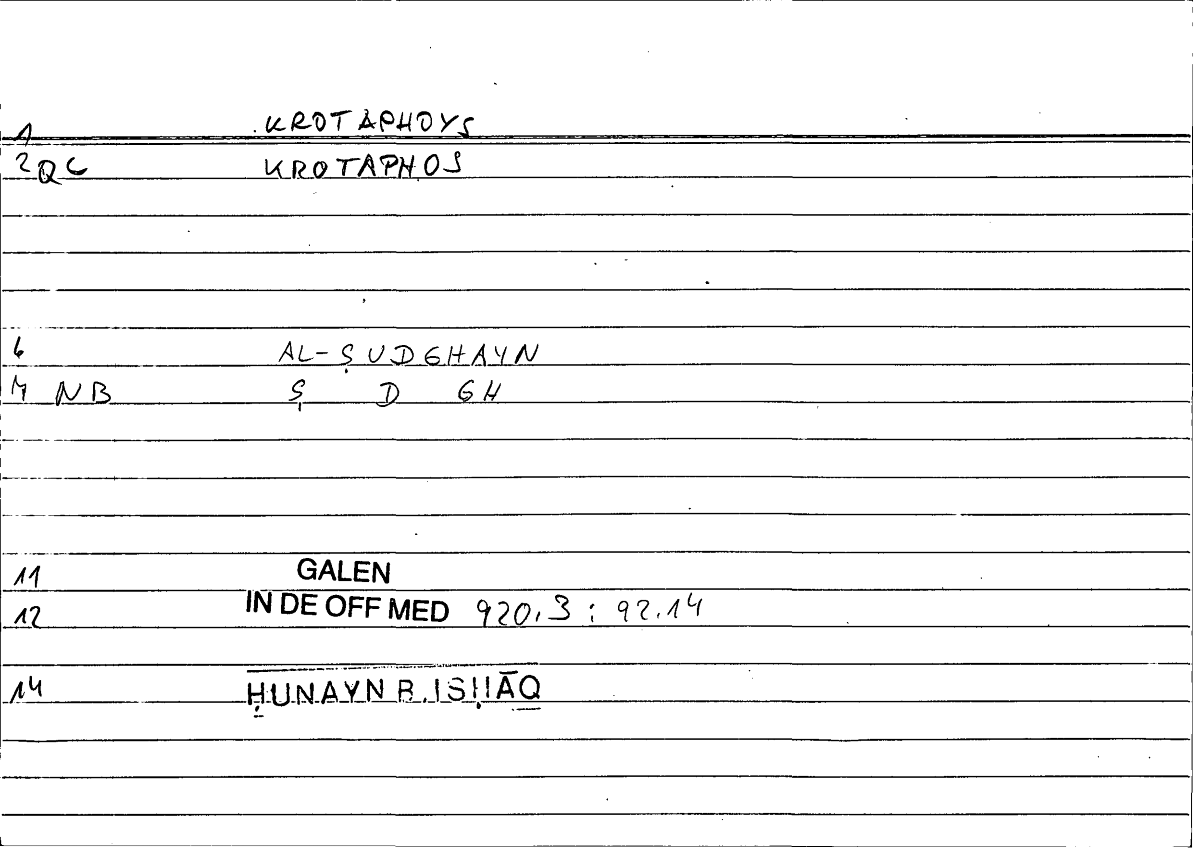 1 KROTAPHOYS
2 QC KROTAPHOS
6 AL-ṢUDGHAYN
7 NB Ṣ D GH
11 GALEN
12 IN DE OFF MED 920,3 : 92.14
14 ḤUNAYN B. ISḤĀQ